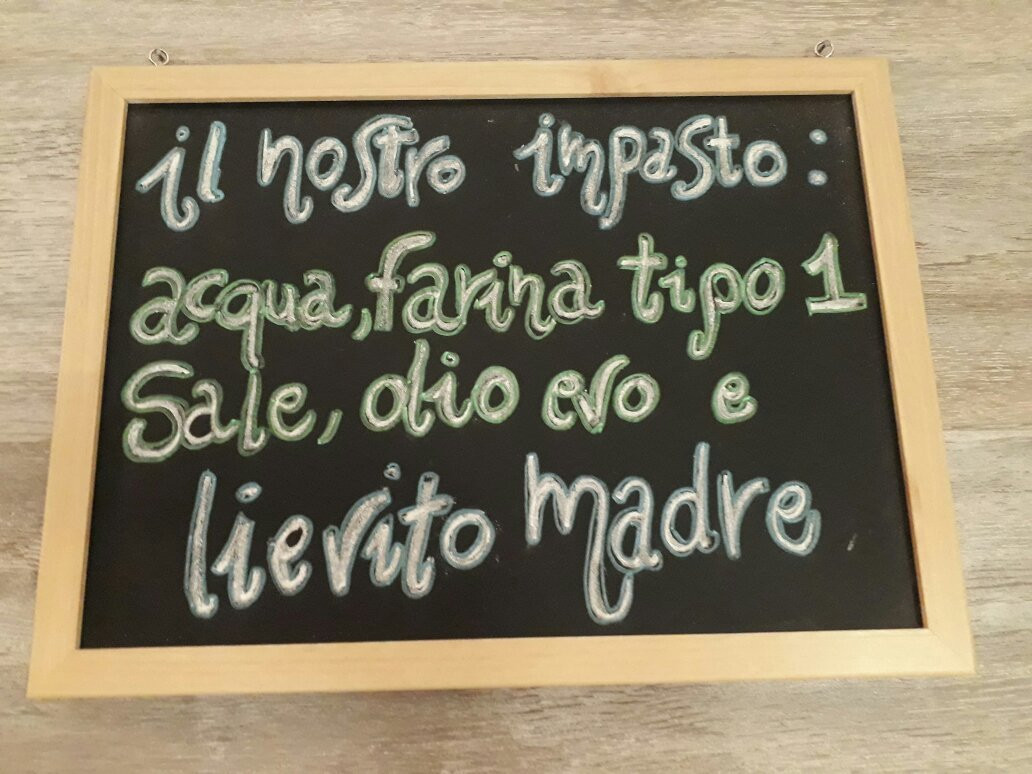 il nostro impasto:
acqua, farina tipo 1
Sale, olio evo e
lievito madre